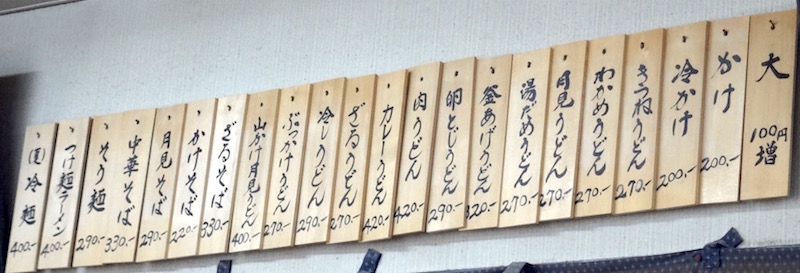 大 100円増
かけ 200.-
冷かけ 200.-
きつねうどん 270.-
わかめうどん 270.-
月見うどん 270.-
湯だめうどん 270.-
釜あげうどん 320.-
卵とじうどん 290.-
肉うどん 420.-
カレーうどん 420.-
ざるうどん 270.-
冷しうどん 290.-
ぶっかけうどん 270.-
山かけ月見うどん 400.-
ざるそば 330.-
かけそば 220.-
月見そば 290.-
中華そば 330.-
そう麺 290.-
つけ麺ラーメン 400.-
(夏)冷麺 400.-